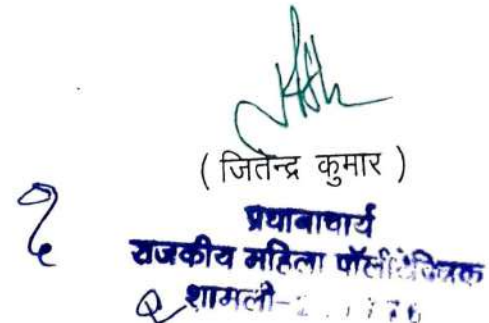 ( जितेन्द्र कुमार )
प्रधानाचार्य
राजकीय महिला पॉलीटेक्निक
शामली-